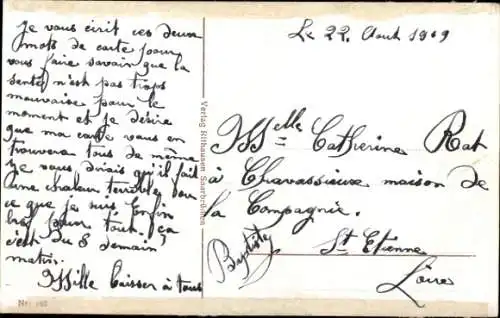 Je vous écrit ces deux
mots de carte pour
vous faire savoir que la
santé n'est pas trops
mauvaise pour le
moment et je désire
que ma carte vous en
trouvera tous de même
Je vous dirais qu'il fait
une chaleur terrible
ce que je suis Enfin
pour tout. ça
c'est du 8 demain
matin.
Mille baisser à tous
Verlag Rithausen Saarbrücken
Le 22 Aout 1919
Melle Catherine Rat
à Chavassieux maison de
la Compagnie.
St Etienne
Loire
Baptiste